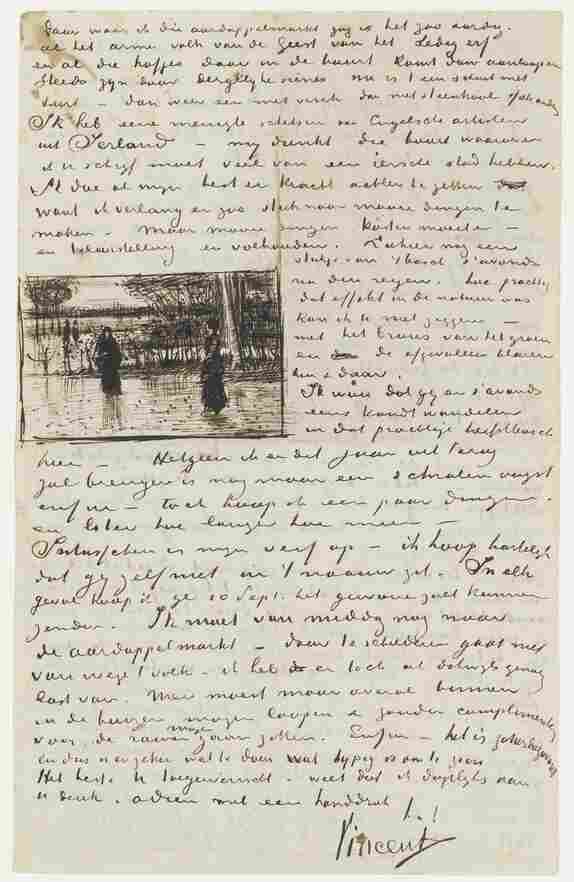 Daar waar ik die aardappelmarkt zag is het zoo aardig.
al het arme volk van de Geest van het Ledig erf
en al die hofjes daar in de buurt komt dan aanloopen
Steeds zijn daar dergelijke scènes nu is 't een schuit met
turf – dan weer een met visch dan met steenkool
Ik heb eene menigte schetsen van Engelsche artisten
uit Ierland – mij dunkt die buurt waarover
ik u schrijf moet veel van een iersche stad hebben.
Ik doe al mijn best er kracht achter te zetten
want ik verlang er zoo sterk naar mooie dingen te
maken – Maar mooie dingen kosten moeite –
en teleurstelling en volhouden. Ziehier nog een
van 't bosch s'avonds
na den regen. hoe prachtig
dat effekt in de natuur was
kan ik u niet zeggen –
met het brons van het groen
en de afgevallen blaren
hier & daar.
Ik wou dat gij er s'avonds
eens kondt wandelen
in dat prachtige beukbosch
hier – Hetgeen ik er dit Jaar uit terug
zal brengen is nog maar een
en fin – toch hoop ik een paar dingen.
en later hoe langer hoe meer –
Intusschen is mijn verf op – ik hoop hartelijk
dat gij zelf niet in 't naauw zit. In elk
geval hoop ik ge 10 Sept. het gewone zult kunnen
zenden. Ik moet van middag nog naar
de aardappelmarkt – daar te schilderen gaat niet
van wege 't volk – ik heb er toch al dikwijls genoeg
last van. Men moest maar overal binnen
in de huizen mogen loopen & zonder complimenten
voor de ramen mogen gaan zitten. Enfin – het is
en dus is er zeker wat te doen wat typig is om te zien
Het beste U toegewenscht. weet dat ik dagelijks aan
U denk. adieu met een handdruk
t. à t.
Vincent